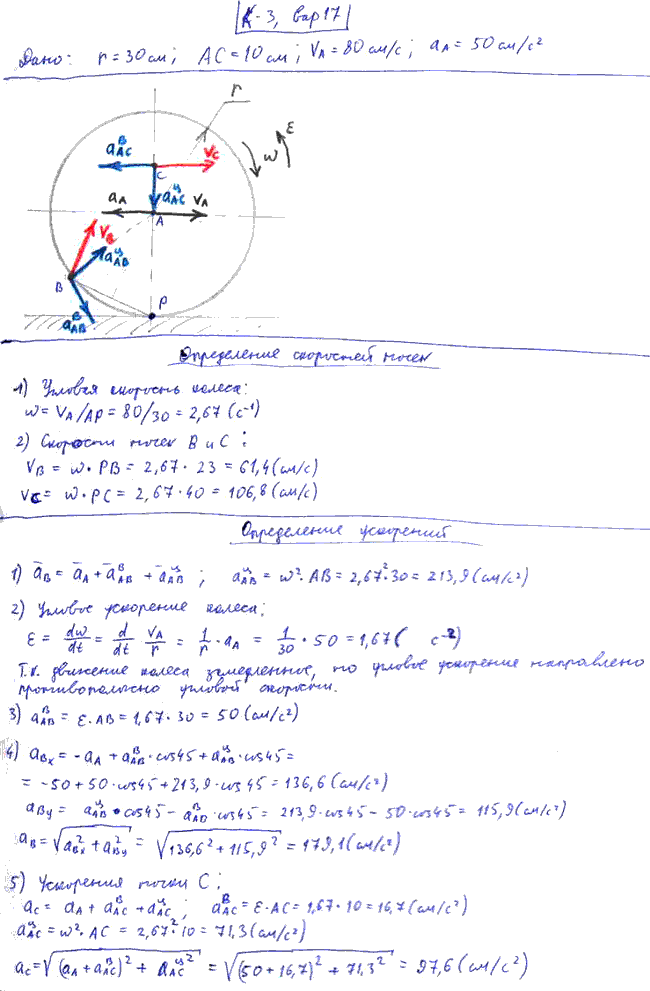 К-3, вар 17
Дано: r = 30 см; AC = 10 см; VA = 80 см/с; aA = 50 см/с²
r
ε
ω
aᴮAC
VC
C
aᶸAC
aA
VA
A
VB
aᶸAB
B
aᴮAB
P
Определение скоростей точек
1) Угловая скорость колеса:
ω = VA/AP = 80/30 = 2,67 (с⁻¹)
2) Скорости точек B и C:
VB = ω · PB = 2,67 · 23 = 61,4 (см/с)
VC = ω · PC = 2,67 · 40 = 106,8 (см/с)
Определение ускорений
1) āB = āA + āᴮAB + āᶸAB ; aᶸAB = ω² · AB = 2,67² · 30 = 213,9 (см/с²)
2) Угловое ускорение колеса:
ε = dω/dt = d/dt VA/r = 1/r · aA = 1/30 · 50 = 1,67 ( с⁻²)
Т.к. движение колеса замедленное, то угловое ускорение направлено
противоположно угловой скорости.
3) aᴮAB = ε · AB = 1,67 · 30 = 50 (см/с²)
4) aBx = -aA + aᴮAB · cos45 + aᶸAB · cos45 =
= -50 + 50 · cos45 + 213,9 · cos45 = 136,6 (см/с²)
aBy = aᶸAB · cos45 - aᴮAB · cos45 = 213,9 · cos45 - 50 · cos45 = 115,9 (см/с²)
aB = √(aBx² + aBy²) = √(136,6² + 115,9²) = 179,1 (см/с²)
5) Ускорения точки C:
aC = aA + aᴮAC + aᶸAC ; aᴮAC = ε · AC = 1,67 · 10 = 16,7 (см/с²)
aᶸAC = ω² · AC = 2,67² · 10 = 71,3 (см/с²)
aC = √((aA + aᴮAC)² + aᶸAC²) = √((50 + 16,7)² + 71,3²) = 97,6 (см/с²)